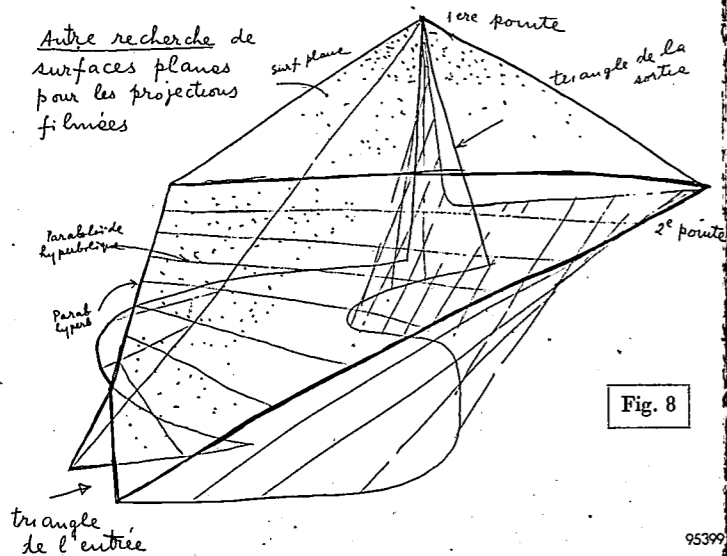 Autre recherche de
surfaces planes
pour les projections
filmées
surf plane
1ere pointe
triangle de la
sortie
2e pointe
Paraboloide
hyperbolique
Parab
hyperb
Fig. 8
triangle
de l'entrée
95399